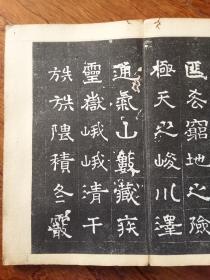 窮地之險
極天之峻川澤
通氣山藪藏疾
靈嶽峨峨清干
隈積冬霰